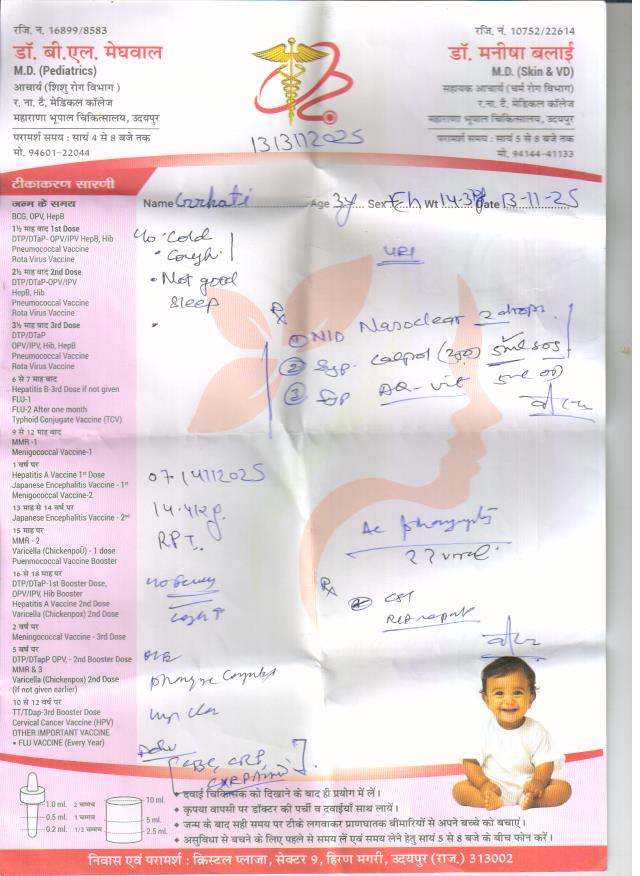 रजि. न. 16899/8583
डॉ. बी.एल. मेघवाल
M.D. (Pediatrics)
आचार्य (शिशु रोग विभाग)
र. ना. टै. मेडिकल कॉलेज
महाराणा भूपाल चिकित्सालय, उदयपुर
परामर्श समय : सायं 4 से 8 बजे तक
मो. 94601-22044
रजि. नं. 10752/22614
डॉ. मनीषा बलाई
M.D. (Skin & VD)
सहायक आचार्य (चर्म रोग विभाग)
र.ना. टै. मेडिकल कॉलेज
महाराणा भूपाल चिकित्सालय, उदयपुर
परामर्श समय : सायं 5 से 8 बजे तक
मो. 94144-41133
टीकाकरण सारणी
Name Age 3y Sex Fch Wt Date 13-11-25
जन्म के समय
BCG, OPV, HepB
1½ माह बाद 1st Dose
DTP/DTaP- OPV/IPV HepB, Hib
Pneumococcal Vaccine
Rota Virus Vaccine
2½ माह बाद 2nd Dose
DTP/DTaP-OPV/IPV
HepB, Hib
Pneumococcal Vaccine
Rota Virus Vaccine
3½ माह बाद 3rd Dose
DTP/DTaP
OPV/IPV, Hib, HepB
Pneumococcal Vaccine
Rota Virus Vaccine
6 से 7 माह बाद
Hepatitis B-3rd Dose if not given
FLU-1
FLU-2 After one month
Typhoid Conjugate Vaccine (TCV)
9 से 12 माह बाद
MMR -1
Menigococcal Vaccine-1
1 वर्ष पर
Hepatitis A Vaccine 1st Dose
Japanese Encephalitis Vaccine - 1st
Menigococcal Vaccine-2
13 माह से 14 वर्ष पर
Japanese Encephalitis Vaccine - 2nd
15 माह पर
MMR - 2
Varicella (ChickenpoÜ) - 1 dose
Puenmococcal Vaccine Booster
16 से 18 माह पर
DTP/DTaP-1st Booster Dose,
OPV/IPV, Hib Booster
Hepatitis A Vaccine 2nd Dose
Varicella (Chickenpox) 2nd Dose
2 वर्ष पर
Meningococcal Vaccine - 3rd Dose
5 वर्ष पर
DTP/DTapP OPV, - 2nd Booster Dose
MMR & 3
Varicella (Chickenpox) 2nd Dose
(If not given earlier)
10 से 12 वर्ष पर
TT/TDap-3rd Booster Dose
Cervical Cancer Vaccine (HPV)
OTHER IMPORTANT VACCINE
• FLU VACCINE (Every Year)
Cold
• Cough
• Not good
sleep
URI
Rx
① N/D Nasoclear 2 drops
② Syp. Calpol 5ml SOS
③ Syp 5ml OD
Rx
CST
CBC, CRP,
1.0 ml. 2 चम्मच
0.5 ml. 1 चम्मच
0.2 ml. 1/2 चम्मच
10 ml.
5 ml.
2.5 ml.
♦ दवाई चिकित्सक को दिखाने के बाद ही प्रयोग में लें।
♦ कृपया वापसी पर डॉक्टर की पर्ची व दवाईयाँ साथ लायें।
♦ जन्म के बाद सही समय पर टीके लगवाकर प्राणघातक बीमारियों से अपने बच्चे को बचाएं।
♦ असुविधा से बचने के लिए पहले से समय लें एवं समय लेने हेतु सायं 5 से 8 बजे के बीच फोन करें।
निवास एवं परामर्श : क्रिस्टल प्लाजा, सेक्टर 9, हिरण मगरी, उदयपुर (राज.) 313002